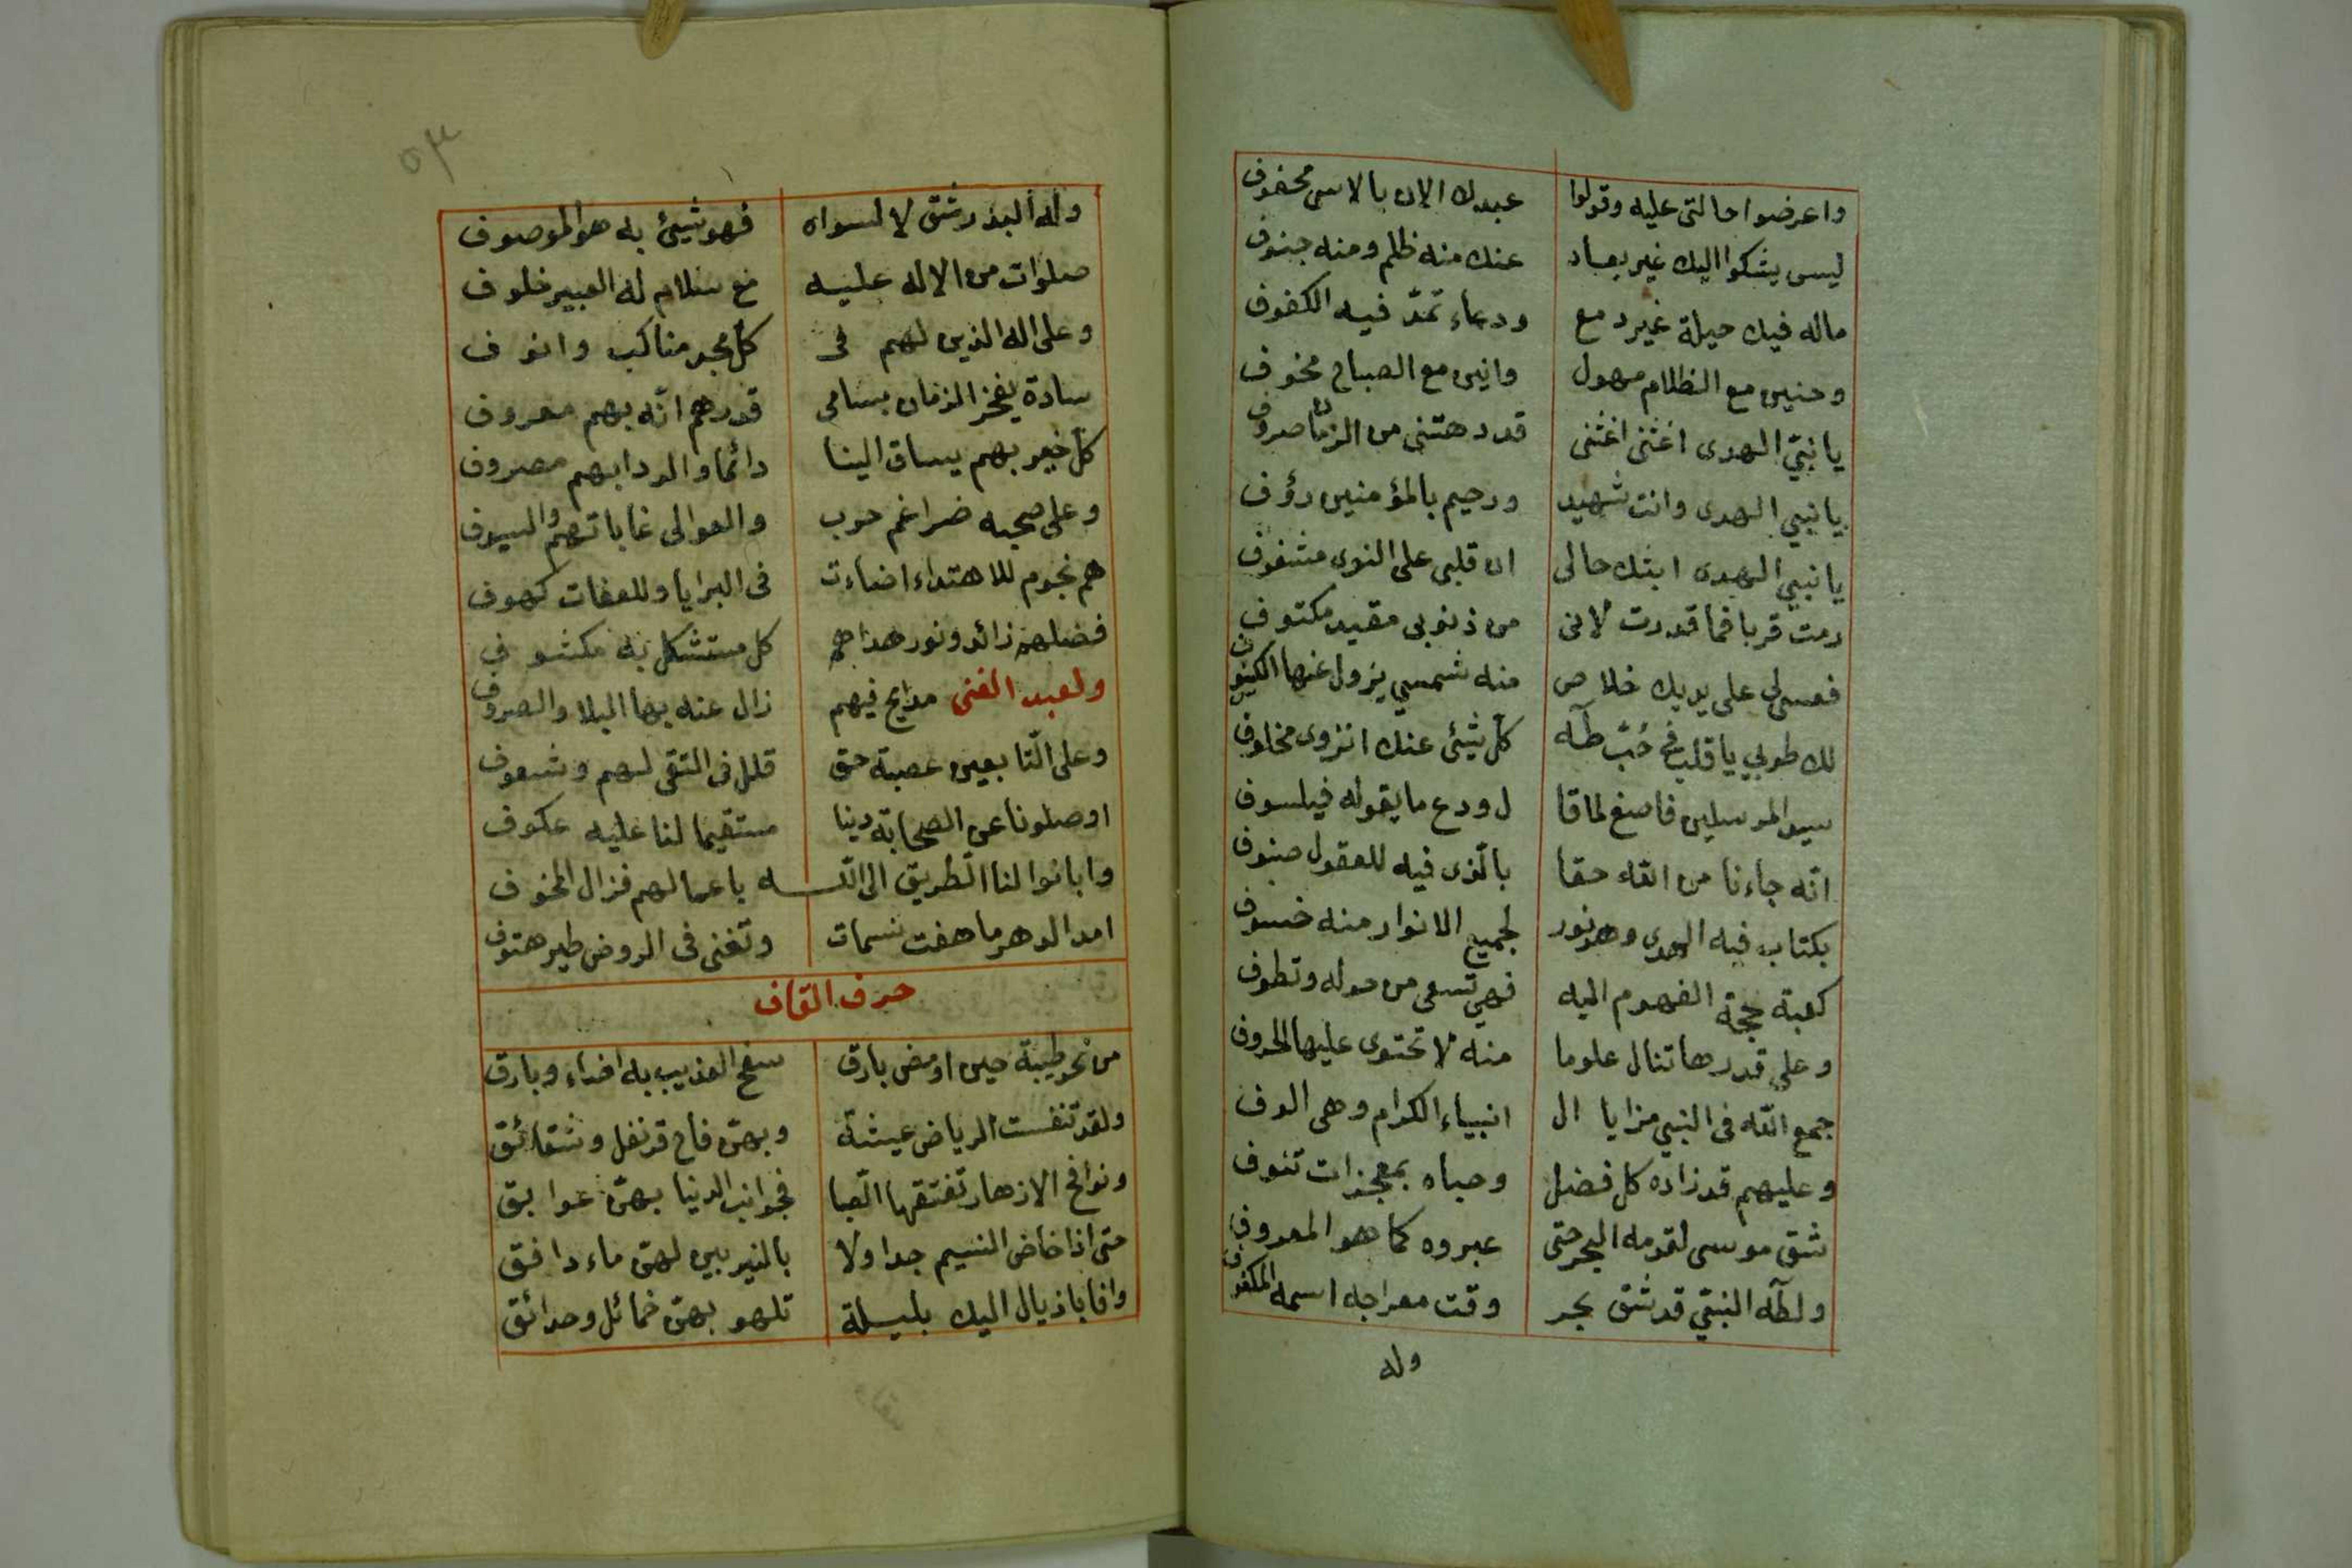 واعرضوا حالتى عليه وقولوا عبدك الان بالاسى محفوف
ليس يشكوا اليك غير بعاد عنك منه ظلم ومنه جنوف
ماله فيك حيلة غير دمع ودعاء تمدّ فيه الكفوف
وحنين مع الظلام مهول وانين مع الصباح مخوف
يا نبيّ الهدى اغثنى اغثنى قد دهتنى من الزمان صروف
يا نبي الهدى وانت شهيد ورحيم بالمؤمنين رؤف
يا نبي الهدى ابثك حالى ان قلبى على النوى مشغوف
رمت قربا فما قدرت لانى من ذنوبى مقيد مكتوف
فعسى لى على يديك خلاص منه شمسي يزول عنها الكسوف
لك طوبي يا قلب فى حُبّ طآه كل شيئ عنك انزوى مخلوف
سيد المرسلين فاصغ لما قا ل ودع ما يقوله فيلسوف
انّه جاءنا من الله حقا بالّذى فيه للعقول صنوف
بكتاب فيه الهدى وهو نور لجميع الانوار منه خسوف
كعبة حجة الفهوم اليه فهي تسعى من حوله وتطوف
وعلى قدرها تنال علوما منه لا تحتوى عليها الحروف
جمع الله فى النبي مزايا ال انبياء الكرام وهى الوف
وعليهم قد زاده كل فضل وحباه بمعجزات تنوف
شق موسى لقومه البحر حتى عبروه كما هو المعروف
ولطآه النبيّ قد شق بحر وقت معراجه اسمه المكفوف
وله
٥٣
وله البدر شق لا لسواه فهو شيئ به هو الموصوف
صلوات من الاله عليه مع سلام له العبير خلوف
وعلى اله الذين لهم فى كل مجد مناكب وانوف
سادة يفخر الزمان بسامى قدرهم انّه بهم معروف
كل خير بهم يساق الينا دائما والردا بهم مصروف
وعلى صحبه ضراغم حرب والعوالى غاباتهم والسيوف
هم نجوم للاهتداء اضاءت فى البرايا وللعفات كهوف
فضلهم زائد ونور هداهم كل مستشكل به مكشوف
ولعبد الغنى مدايح فيهم زال عنه بها البلا والصروف
وعلى التّابعين عصبة حق قلل فى التقى لهم وشعوف
اوصلونا عن الصحابة دينا مستقيما لنا عليه عكوف
وابانوا لنا الطريق الى اللّـــه باعمالهم فزال المخوف
امد الدهر ما هفت نسمات وتغنى فى الروض طير هتوف
حرف القاف
من نحو طيبة حين اومض بارق سفح العذيب به اضاء وبارق
ولقد تنفست الرياض عيشة وبهنّ فاح قرنفل وشقائق
ونوافح الازهار تفتقها الصّبا فجوانب الدنيا بهنّ عوابق
حتى اذا خاض النسيم جداولا بالنيربين لهنّ ماء دافق
وافا باذيال اليك بليلة تلهو بهنّ خمائل وحدائق